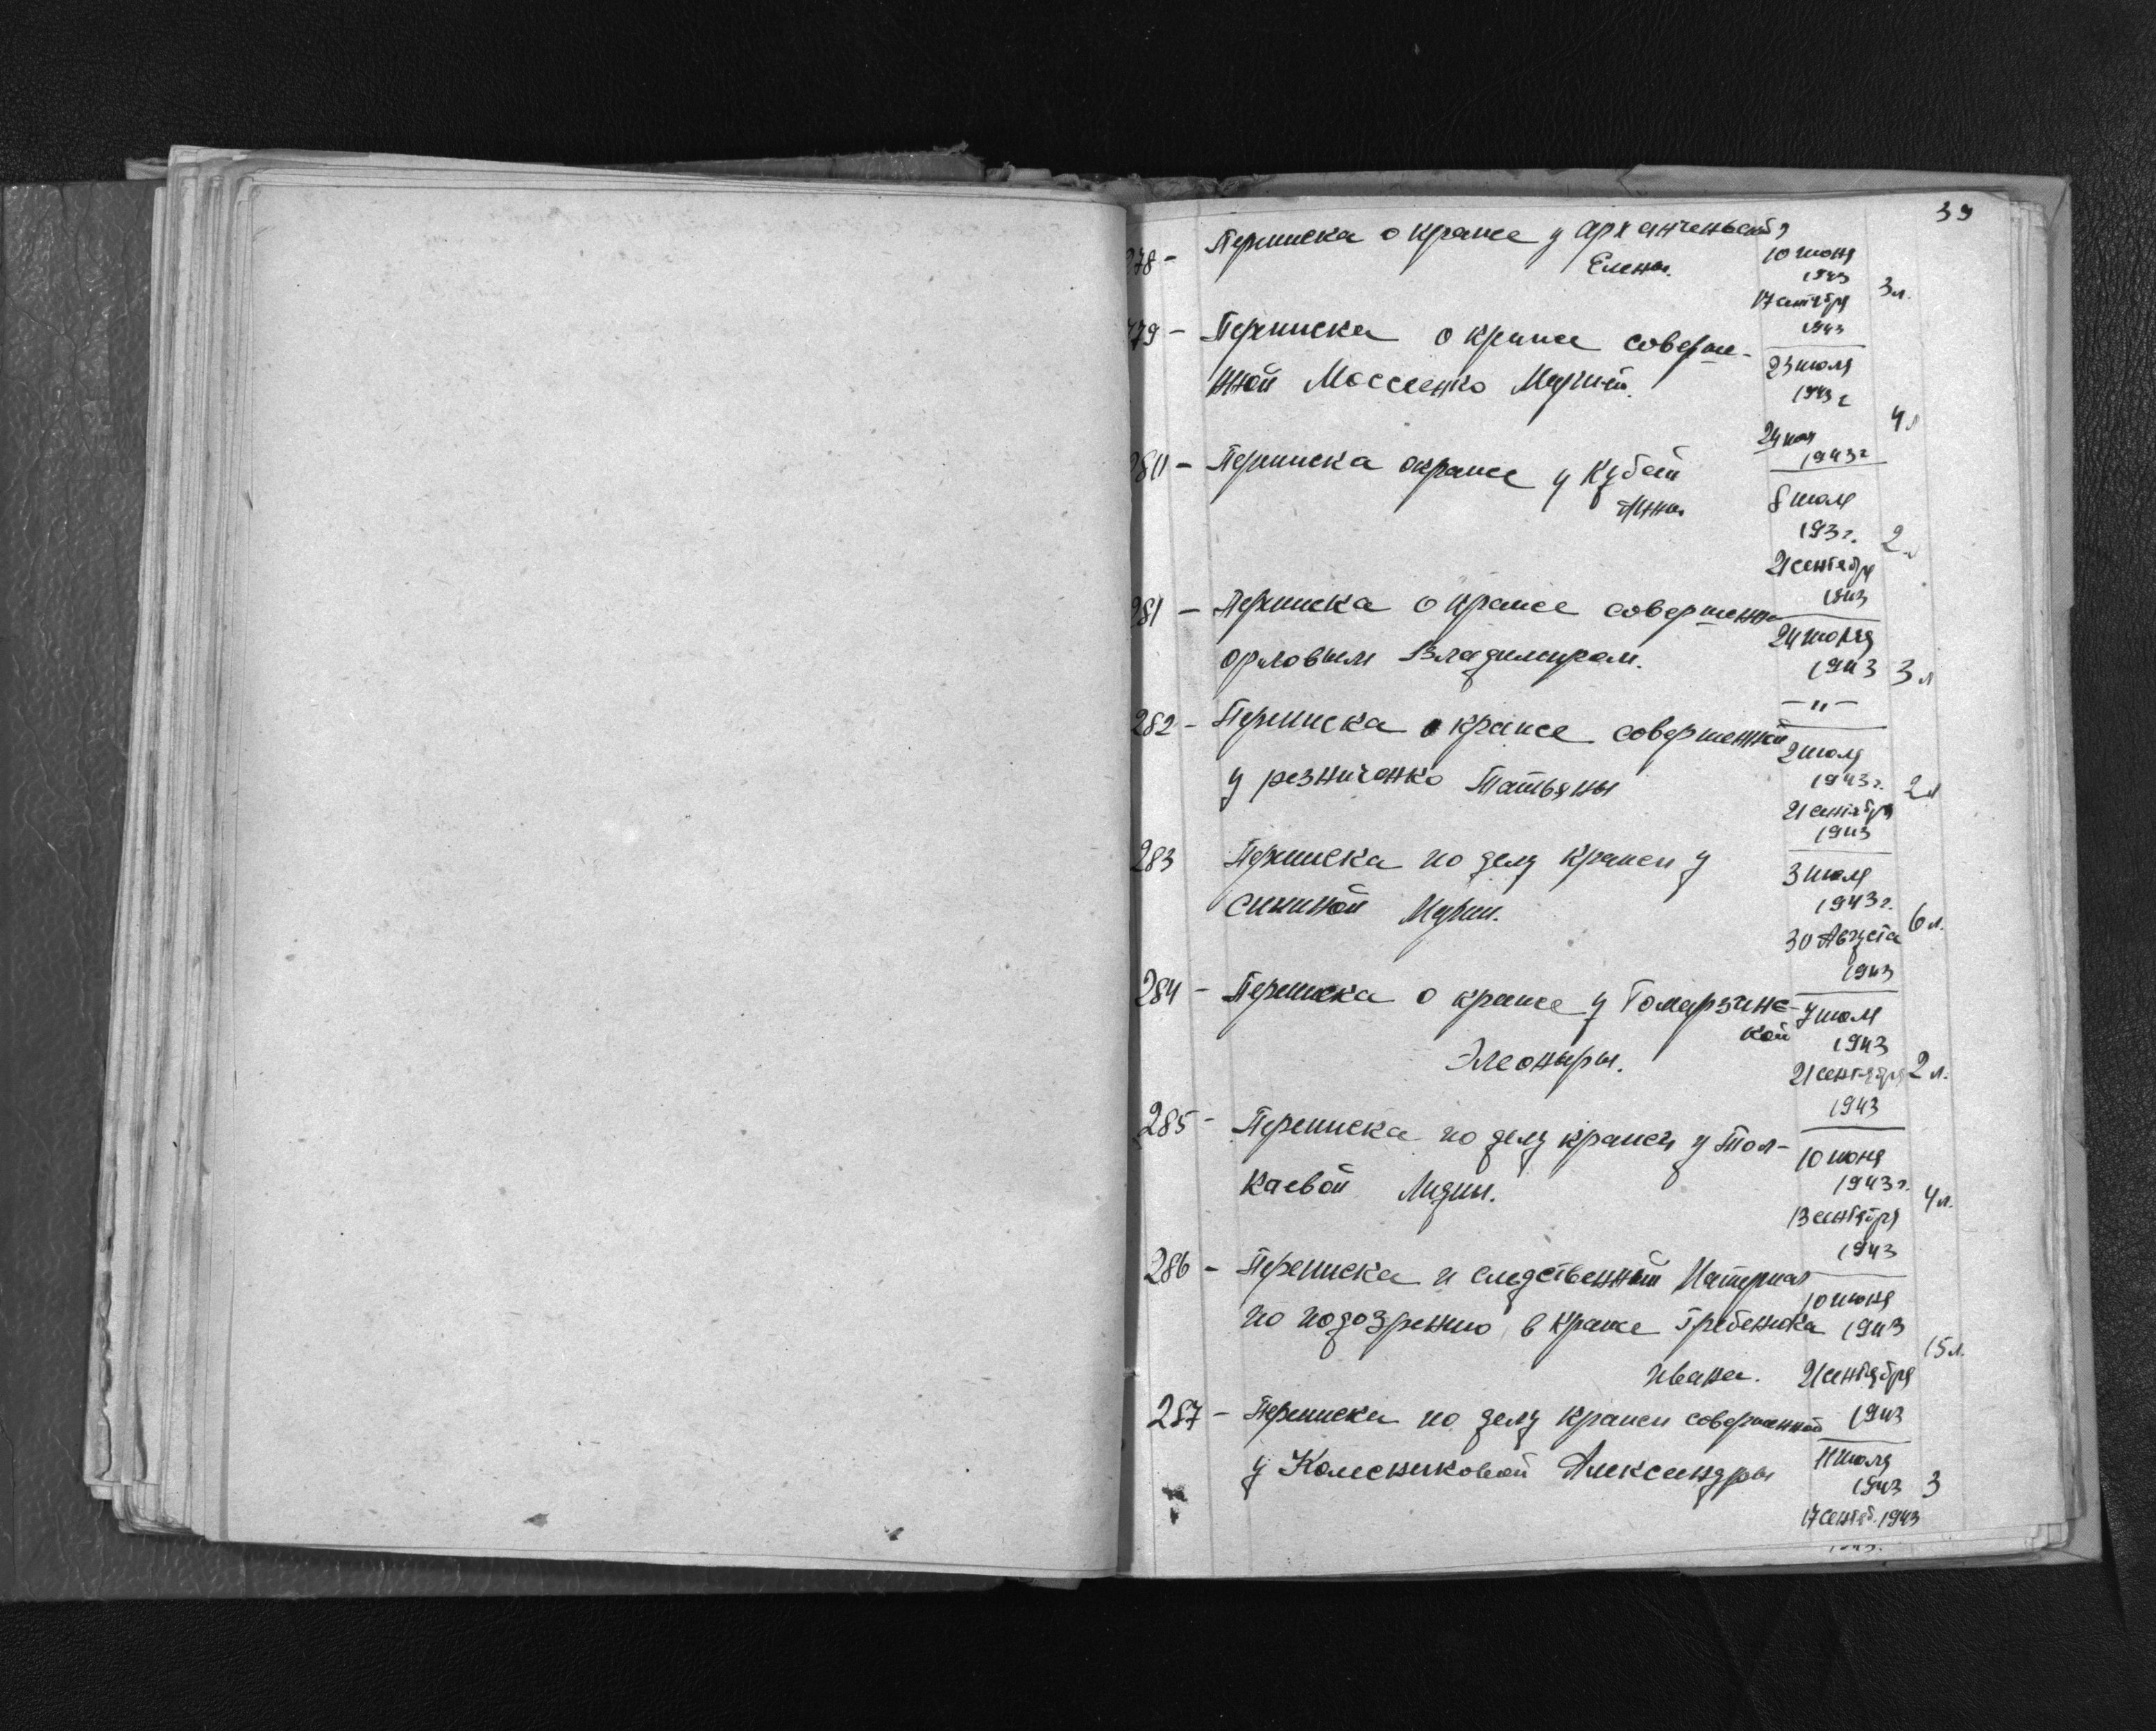 39
278 - Переписка о краже у Архангельской
Елены. 10 июня
1943 3 л.
17 сентября
1943
279 - Переписка о краже соверше-
нной Моссеенко Марией. 23 июля
1943 г
4 л
24 мая
1943 г
280 - Переписка о краже у Кубай
Анны 8 июля
193 г. 2 л
21 сентября
1943
281 - Переписка о краже совершенно
Орловым Владимиром. 24 июня
1943 3 л
-"-
282 - Переписка о краже совершенной
у Резниченко Татьяны 2 июля
1943 г. 2 л
21 сентября
1943
283 Переписка по делу кражи у
Сининой Марии. 3 июля
1943 г.
30 Августа 6 л.
1943
284 - Переписка о краже у Гомарзинс-
кой 7 июля
Элеоныры. 1943
21 сентября 2 л.
1943
285 - Переписка по делу кражи у Тол-
каевой Лидии. 10 июня
1943 г. 4 л.
13 сентября
1943
286 - Переписка и следственный Материал
по подозрению в краже Гребенюка 10 июня
1943
Ивана. 15 л.
21 сентября
1943
287 - Переписка по делу кражи совершенной
у Колесниковой Александры 11 июля
1943 3
17 сентяб. 1943